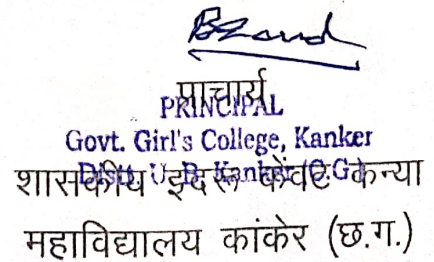 प्राचार्य
PRINCIPAL
Govt. Girl's College, Kanker
Distt. U. B. Kanker (C.G.)
शासकीय इंदरू केंवट कन्या
महाविद्यालय कांकेर (छ.ग.)